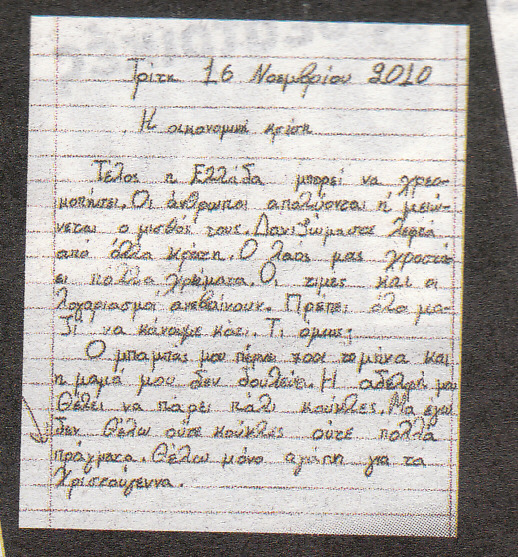 Τρίτη 16 Νοεμβρίου 2010
Η οικονομική κρίση
Τέλος η Ελλάδα μπορεί να χρεο-
κοπήσει. Οι άνθρωποι απολύονται ή μειώ-
νεται ο μισθός τους. Δανιζόμαστε λεφτά
από άλλα κράτη. Ο λαός μας χροστά-
ει πολλά χρήματα. Οι τιμές και οι
λογαριασμοί ανεβαίνουν. Πρέπει όλοι μα-
ζί να κάνουμε κάτι. Τι όμως;
Ο μπαμπάς μου πέρνει τον μήνα και
η μαμά μου δεν δουλεύει. Η αδελφή μου
θέλει να πάρει πάλι κούκλες. Μα εγώ
δεν θέλω ούτε κούκλες ούτε πολλά
πράγματα. Θέλω μόνο αγάπη για τα
Χριστούγεννα.